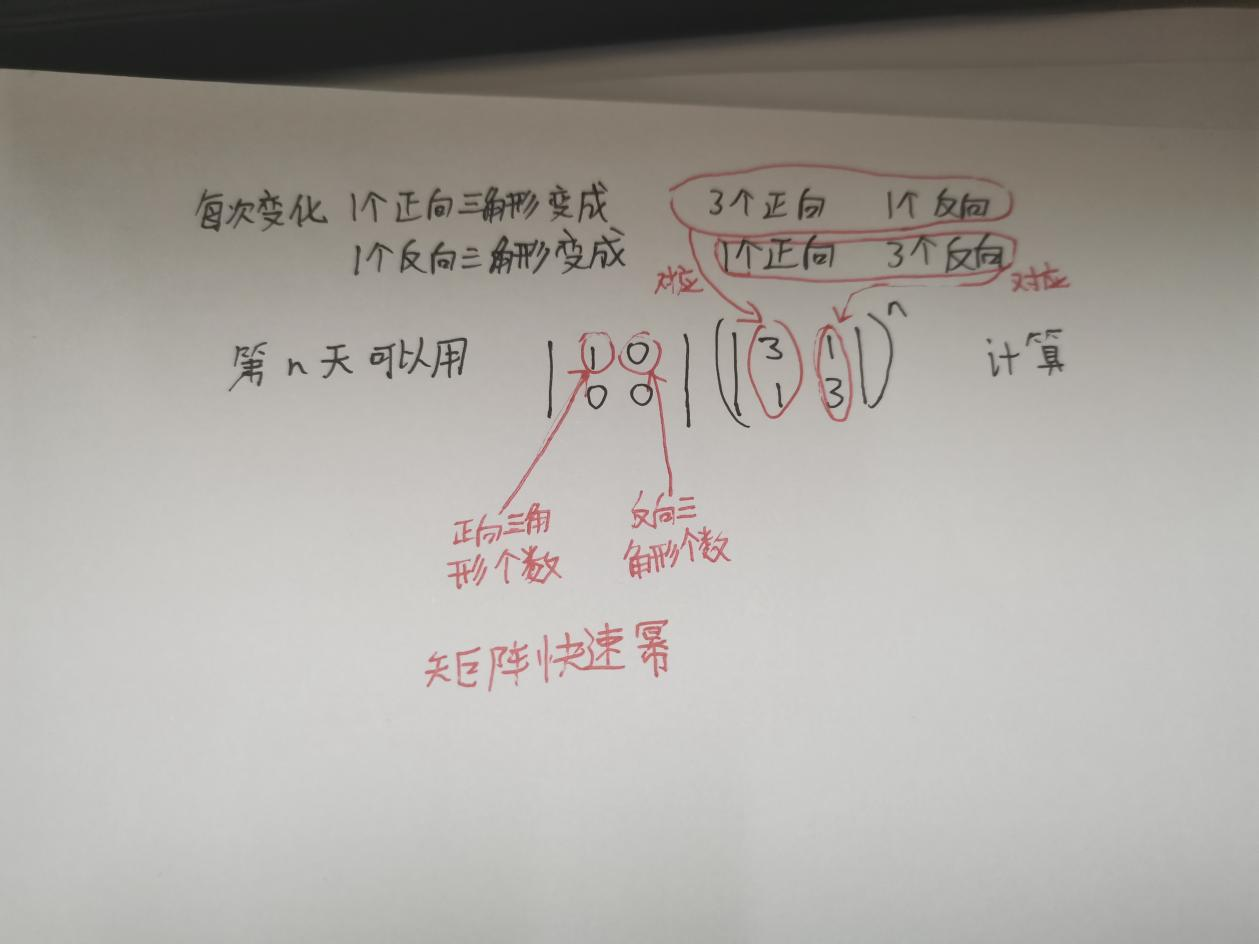 每次变化 1个正向三角形变成 3个正向 1个反向
1个反向三角形变成 1个正向 3个反向
对应 对应
第n天可以用 | 1 0 | (| 3 1 |)ⁿ 计算
| 0 0 | (| 1 3 |)
正向三角 反向三
形个数 角形个数
矩阵快速幂